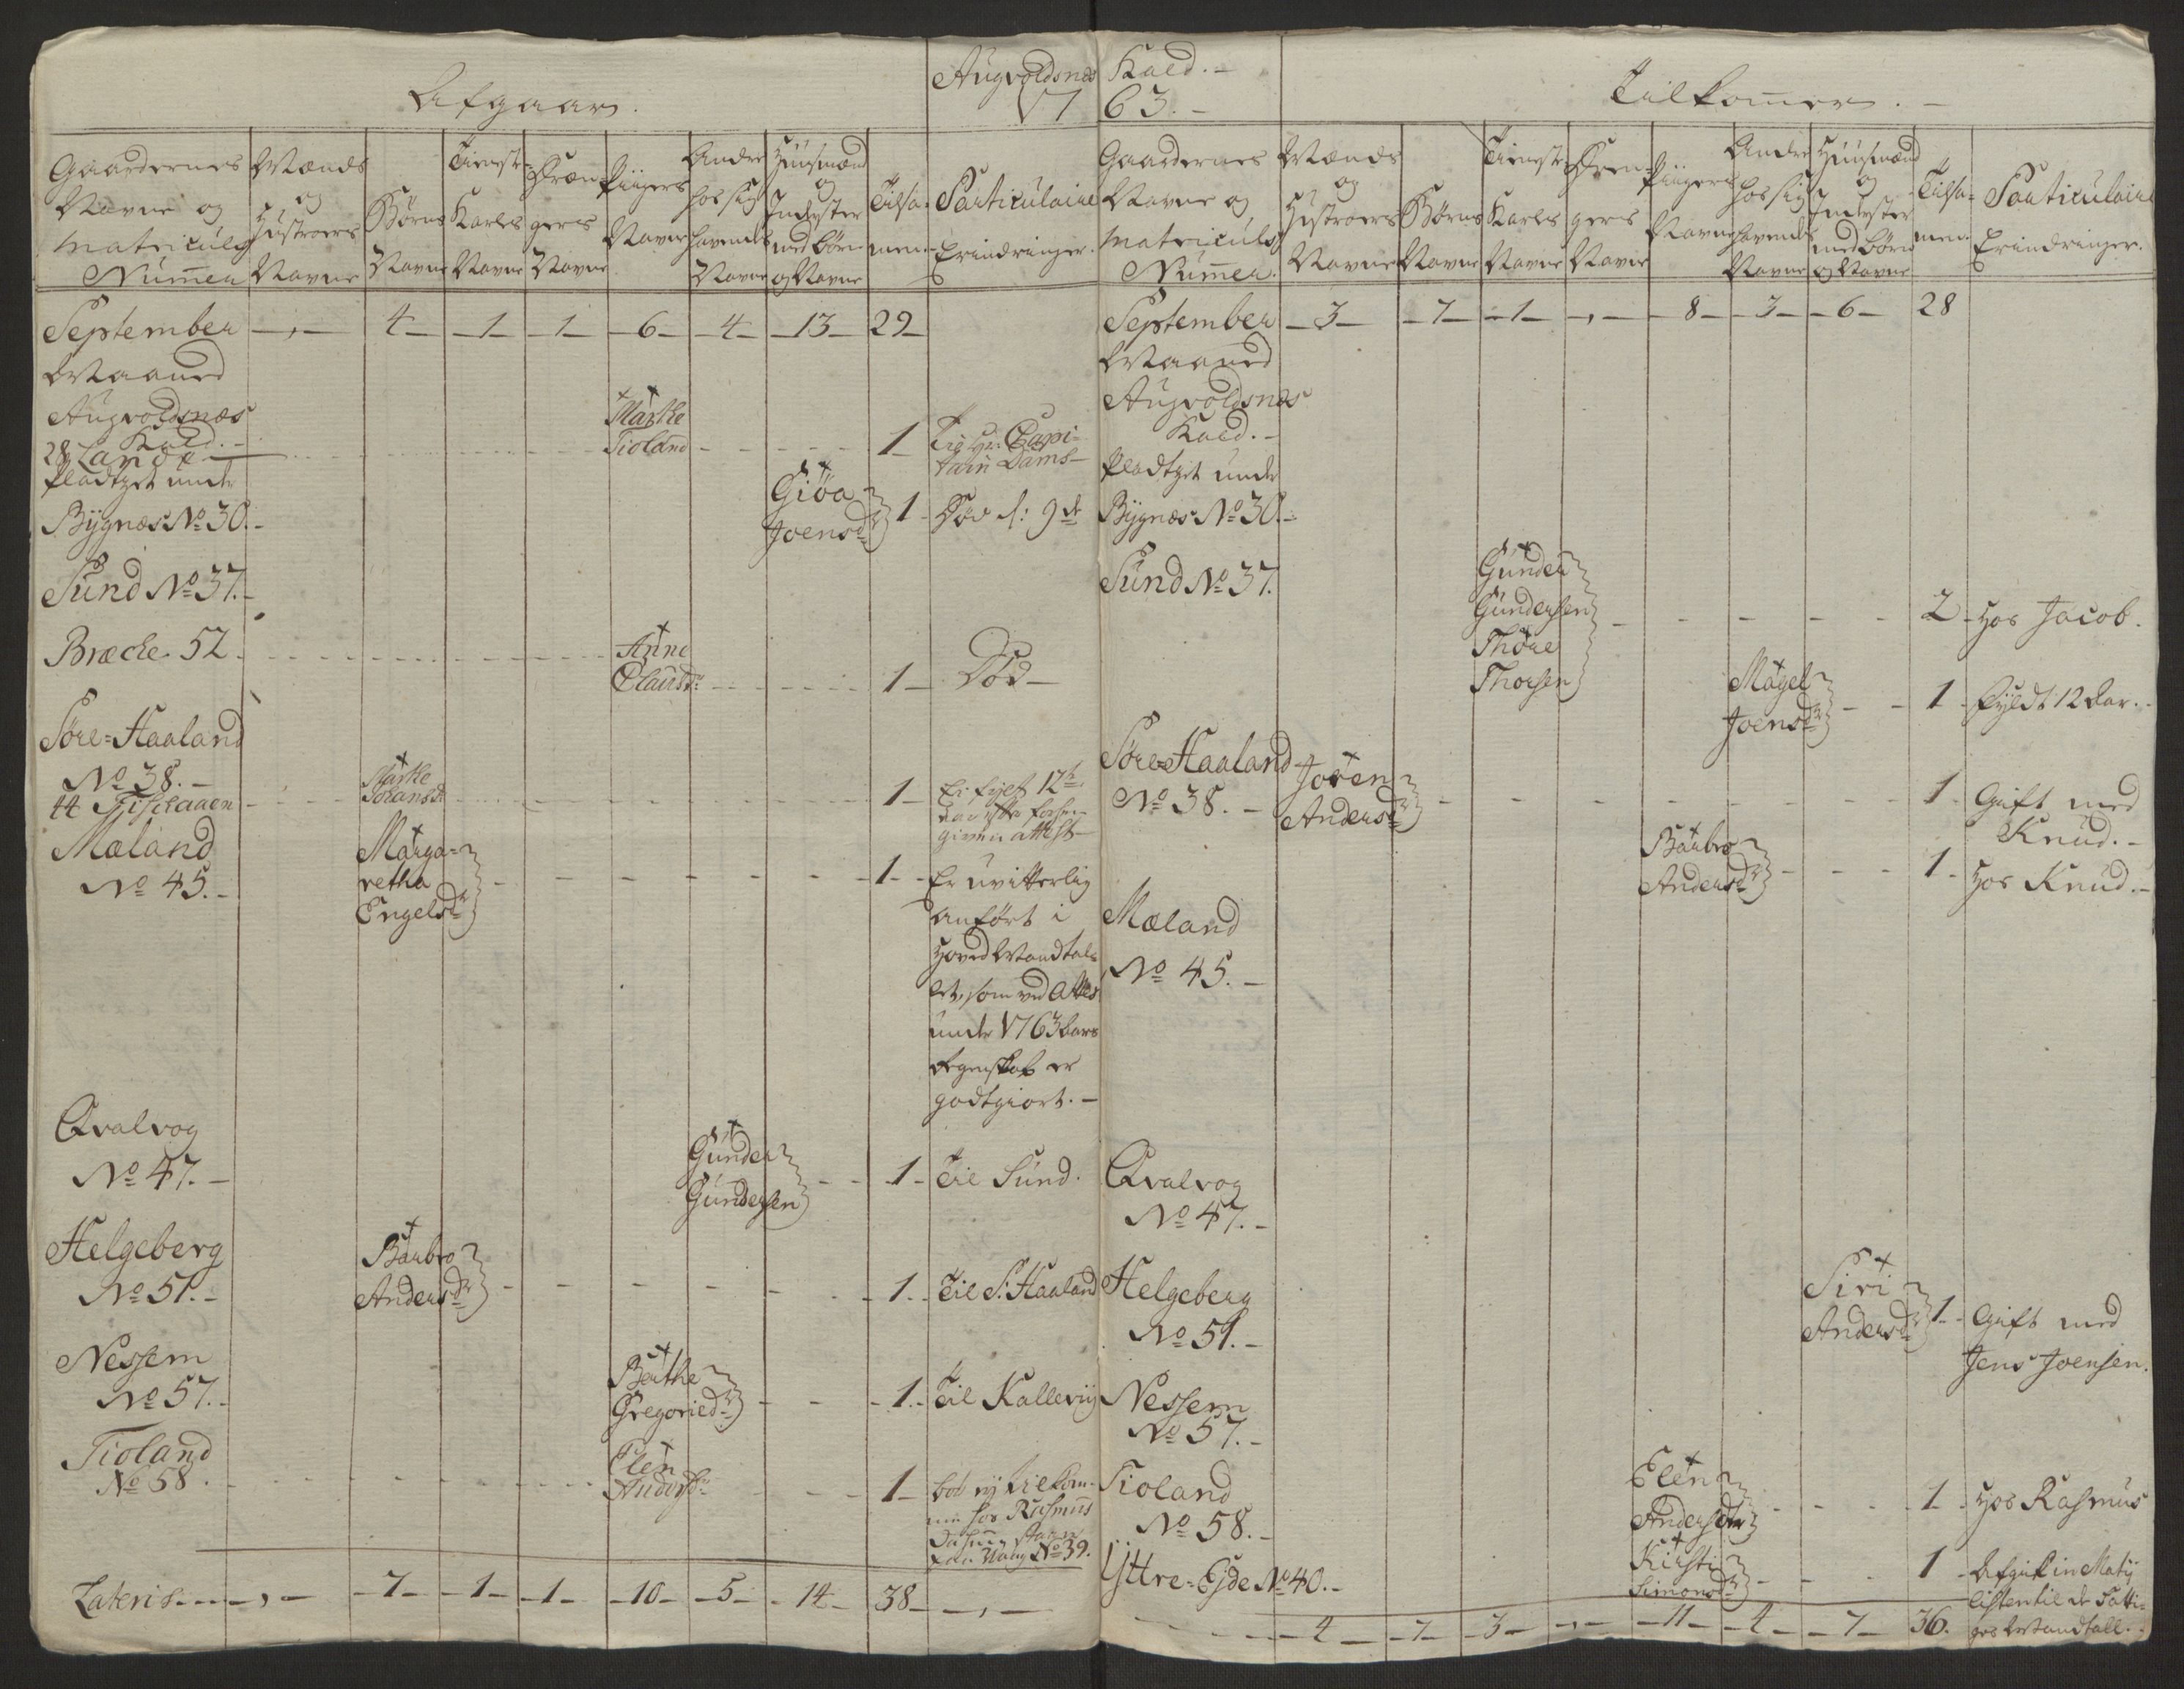 Afgaar.
Augvoldsnes Kald.-
1763.-
Tilkommer.-
Gaardernes Navne og Matriculs Nummer
Mænds og Hustroers Navne
Børns Navne
Tieneste Karles Navne
Drengers Navne
Piigers Navne
Andre hos sig havendes Navne
Huusmænd og Inderster med børn og Navne
Tilsamen.
Particulaire Erindringer.
September -,- 4- -1- -1- -6- -4- -13- 29-
Maaned
Augvoldsnæs
Kald.-
28 Lande
Marthe
Tioland
1-
Til Hr: Capitain Dams-
Pladtzet under
Bÿgnæs No 30.-
Giøa
Joensdr
1-
Død d: 9de
Sund No 37.-
Bræche 52.
Anne
Clausdr
1-
Død-
Søre-Haaland
No 38.-
44
Marthe
Johansdr
1-
Mæland
No 45.-
Margaretha
Engelsdr
-1-
Er uvitterlig
anført i
Hoved Mandtal-
let, som ved Attest
under 1763 Aars
Regenskab er
godtgiort.-
Qvalvog
No 47.-
Gunder
Gundersen
-1-
Til Sund.
Helgeberg
No 51.-
Barbro
Andersdr
-1.-
Til S: Haaland
Nessem
No 57.-
Berthe
Gregoriedr
-1.-
Til Kallevig
Tioland
No 58.
Elen
Andersdr
1-
hos Rasmus
No 39.
Lateris -,- -7- -1- -1- -10- -5- -14- 38- -,-
Gaardernes Navne og Matriculs Nummer.
Mænds og Hustroers Navne
Børns Navne
Tieneste Karles Navne
Drengers Navne
Piigers Navne
Andre hos sig havendes Navne
Huusmænd og Inderster med børn og Navne
Tilsamen.
Particulaire Erindringer.
September -3- -7- -1- -,- -8- -3- -6- 28
Maaned
Augvoldsnæs
Kald.-
Pladtzet under
Bÿgnæs No 30.-
Sund No 37.
Gunder
Gundersen
Thore
Thorsen
2-
Hos Jacob.
Magel
Joensdr
1-
Fyldt 12 Aar.-
Søre-Haaland
No 38.-
Joren
Andersdr
1-
Gift med
Knud.-
Barbro
Andersdr
1-
Hos Knud.-
Mæland
No 45.-
Qvalvog
No 47.-
Helgeberg
No 51.-
Siri
Andersdr
1-
Gift med
Jens Joensen.
Nessem
No 57.-
Tioland
No 58.-
Elen
Andersdtr
1-
Hos Rasmus
Yttre-Eyde No 40.-
Kirsti
Simonsdr
1
listen til de Fatti-
ges Mandtall.-
-4- -7- -3- -,- -11- -4- -7- 36.